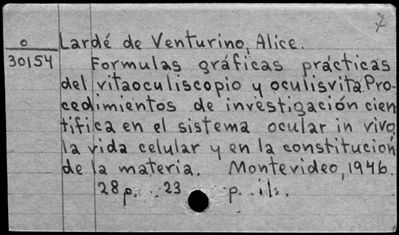 o
30154
Lardé de Venturino, Alice.
Formulas gráficas prácticas
del vitaoculiscopio y oculisvita. Pro-
cedimientos de investigación cien
tifica en el sistema ocular in vivo,
la vida celular y en la constitución
de la materia. Montevideo, 1946.
28 p. .. 23 p. .il.